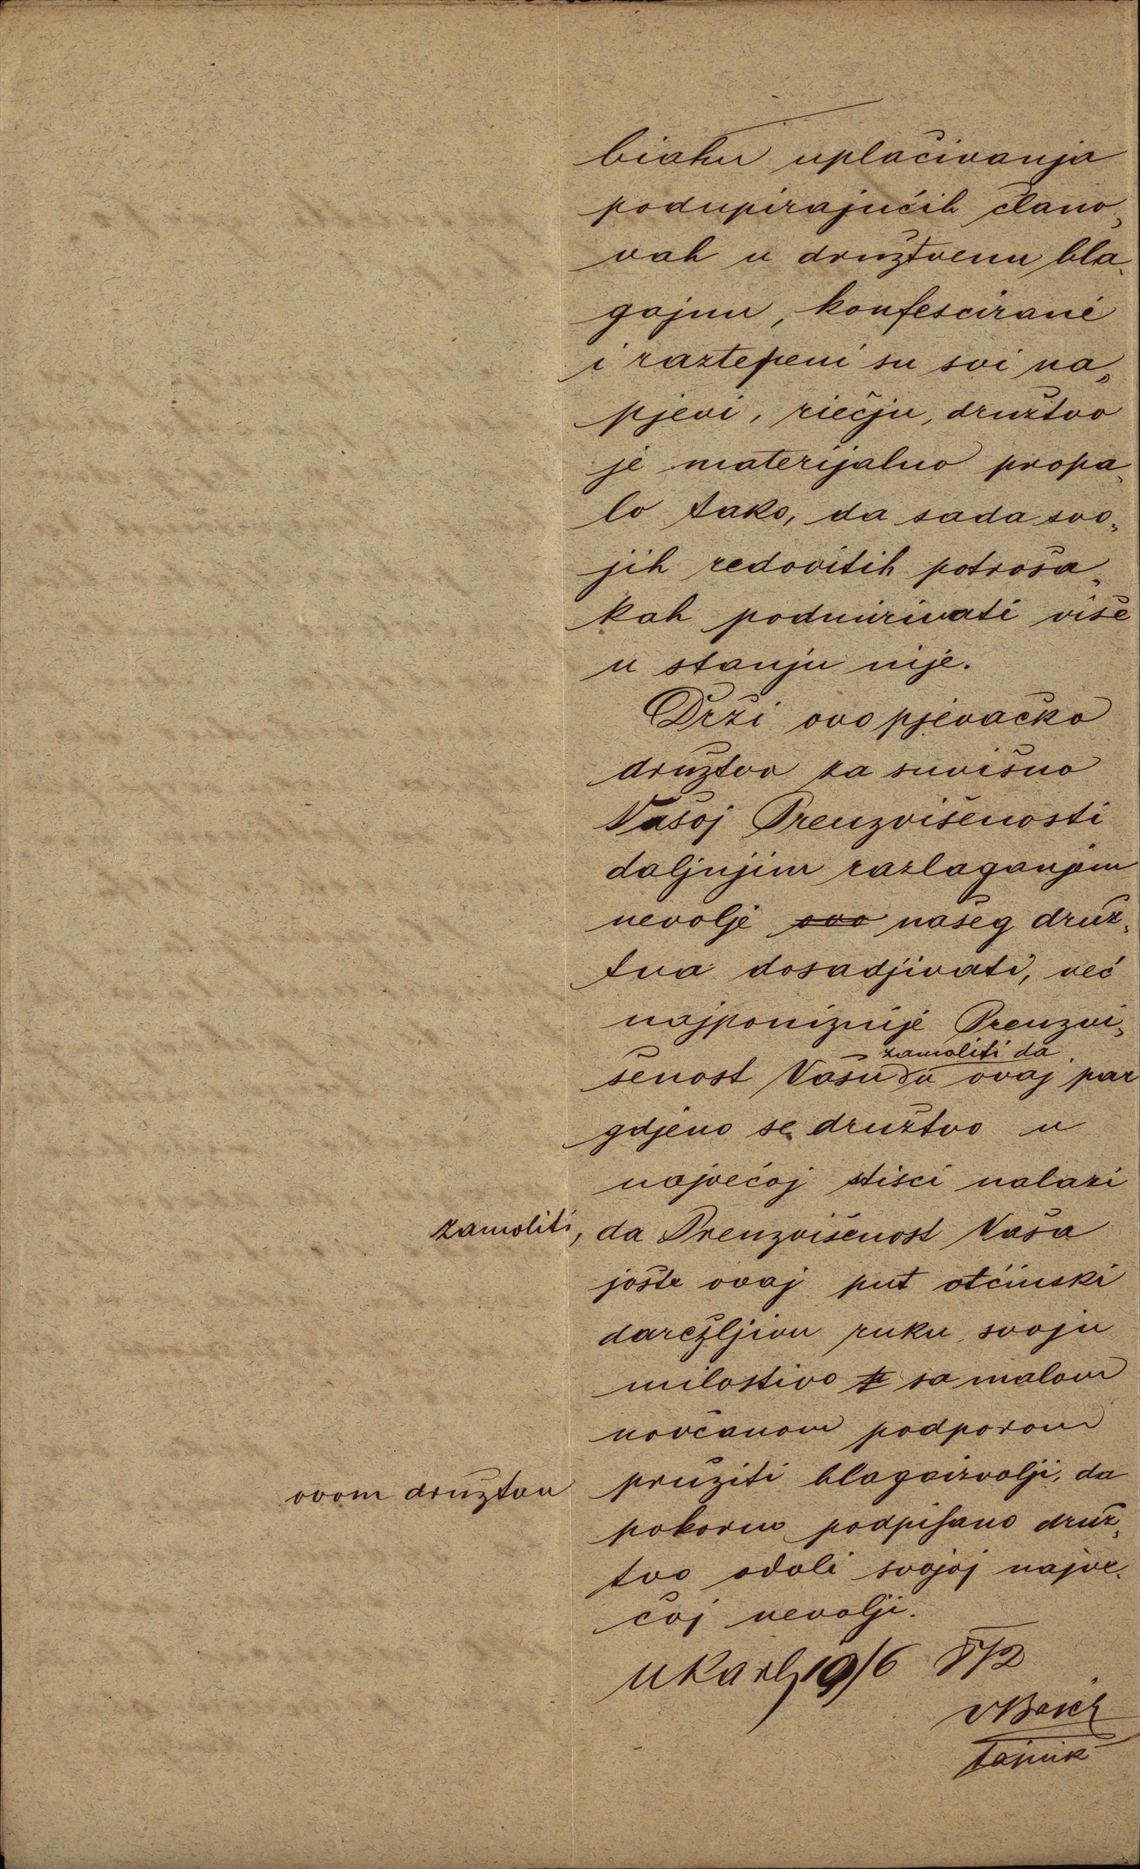 biahu uplaćivanja
podupirajućih člano„
vah u družtvenu bla„
gajnu, konfescirane
i raztepeni su svi na„
pjevi, riečju, družtvo
je materijalno propa„
lo tako, da sada svo„
jih redovitih potroša„
kah podmirivati više
u stanju nije.
Drži ovo pjevačko
družtvo za suvišno
Vašoj Preuzvišenosti
daljnjim razlaganjem
nevolje ovo našeg druž„
tva dosadjivati, već
najponiznije Preuzvi„
zamoliti da
šenost Vašu da ovaj par
gdjeno se družtvo u
najvećoj stisci nalazi
zamoliti, da Preuzvišenost Vaša
jošte ovaj put otčinski
darežljivu ruku svoju
milostivo sa malom
novčanom podporom
ovom družtvu pružiti blagoizvolji, da
pokorno podpisano druž„
tvo odoli svojoj najve„
ćoj nevolji.
U Karl 19/6 872
tajnik